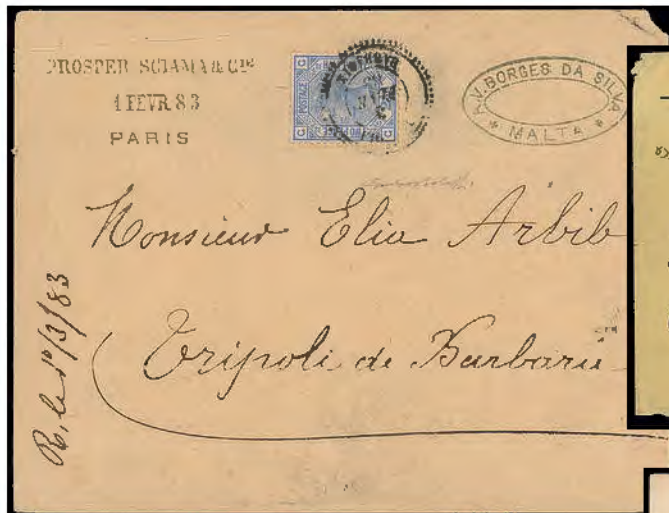 PROSPER SCIAMA & Cie
1 FEVR 83
PARIS
POSTAGE
A.V. BORGES DA SILVA
* MALTA *
Monsieur Elia Arbib
Tripoli de Barbarie
R. le 1º/3/83